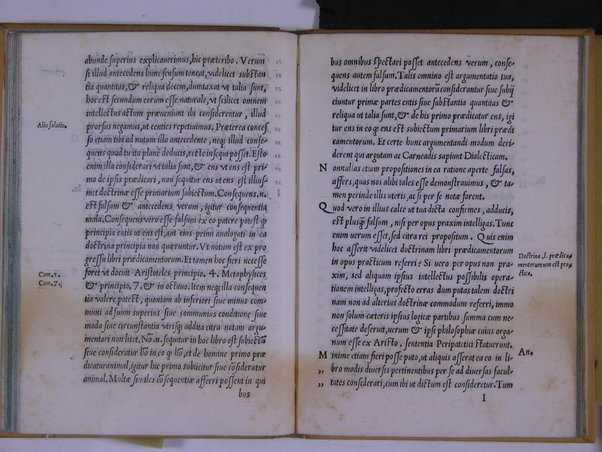 abunde superius explicauerimus, hic præteribo. Verum
si illud antecedens hunc sensum teneat, videlicet substan
tia quantitas, & reliqua decem, dumtaxat vt talia sunt,
hoc est secundum eorum esse naturale, vt scilicet omnem
intellectus actum præueniunt ibi considerentur, illud
prorsus negamus, ut centies repetiuimus. Præterea conces
so etiam tibi ad nutum illo antecedente, neq; illud conse-
quens quod tu ita plane deducis, recte inde sequi posset. Esto
enim, illa considerari vt talia sunt, & ens vt ens est pri
mo de ipsis prædicari, non sequitur ens vt ens est illius-
met doctrinæ esse primarium subiectum. Consequens, n.
est falsum, & antecedens verum, igitur consequentia
mala. Consequens vero esse falsum ex eo patere potest quia
principia entis ut ens est, aut eius primi analogati in ea
doctrina principio non quæruntur. Vt notum est ex pro
gressu libri prædicamentorum. Et tamen hoc fieri necesse
foret vt docuit Aristoteles principio. 4. Metaphysices
& principio, 7. & in octauo. Item neq; illa consequen
tia valere potest, quoniam ab inferiori siue minus com
muni ad suum superius siue communius conditione siue
modo siue circunstantia vtrisq; addita citra notam argu-
mentari non licet. Nō .n. sequitur in hoc libro est subiectū
siue consideratur hō in eo q̃ hō, et de homine primo præ
dicatur animal, igitur hic primo subiicitur siue cōsideratur
animal. Multæ similes cōsequentiæ afferri possent in qui
bus
Alia solutio.
Com. 2.
Com. 7.
bus omnibus spectari posset antecedens verum, conse-
quens autem falsum. Talis omnino est argumentatio tua,
videlicet in libro prædicamentorū considerantur siue subij
ciuntur primæ partes entis siue substantia quantitas &
reliqua ut talia sunt, & de his primo prædicatur ens, igi
tur ens in eo q̃ ens est subiectum primarium libri prædi
camentorum. Et certe hunc argumentandi modum deri-
derent qui argutam ac Carneadis sapiunt Dialecticam.
Nonnullas etiam propositiones in ea ratione aperte falsas,
affers, quas nos alibi tales esse demonstrauimus, & ta-
men perinde illis uteris, ac si per se notæ forent.
Quod vero in illius calce ut tua dicta confirmes, adducis,
est plusq̃ falsum, nisi per opus praxim intelligas. Tunc
enim uerum esset, sed citra rei propositum. Quis enim
hoc asserit videlicet doctrinam libri prædicamentorum
in opus practicum referri? Si uero per opus non pra-
xim, sed aliquam ipsius intellectus possibilis opera-
tionem intelligas, profecto erras dum putas talem doctri
nam non ad alterius doctrinæ commodum referri, immo
non solum cæteris ipsius logicæ partibus summa cum ne-
cessitate deseruit, uerum & ipsi philosophiæ cuius orga-
num esse ex Aristo. sententia Peripatetici statuerunt.
Minime etiam fieri posse puto, ut aliquis asserat ea eo in li
„ bro modis diuersis pertinentibus per se ad diuersas facul-
„ tates considerari, cum ibi ut dictum est consideretur. Tum
I
Doctrina .l. prædica-
mentorum non est pra
ctica.